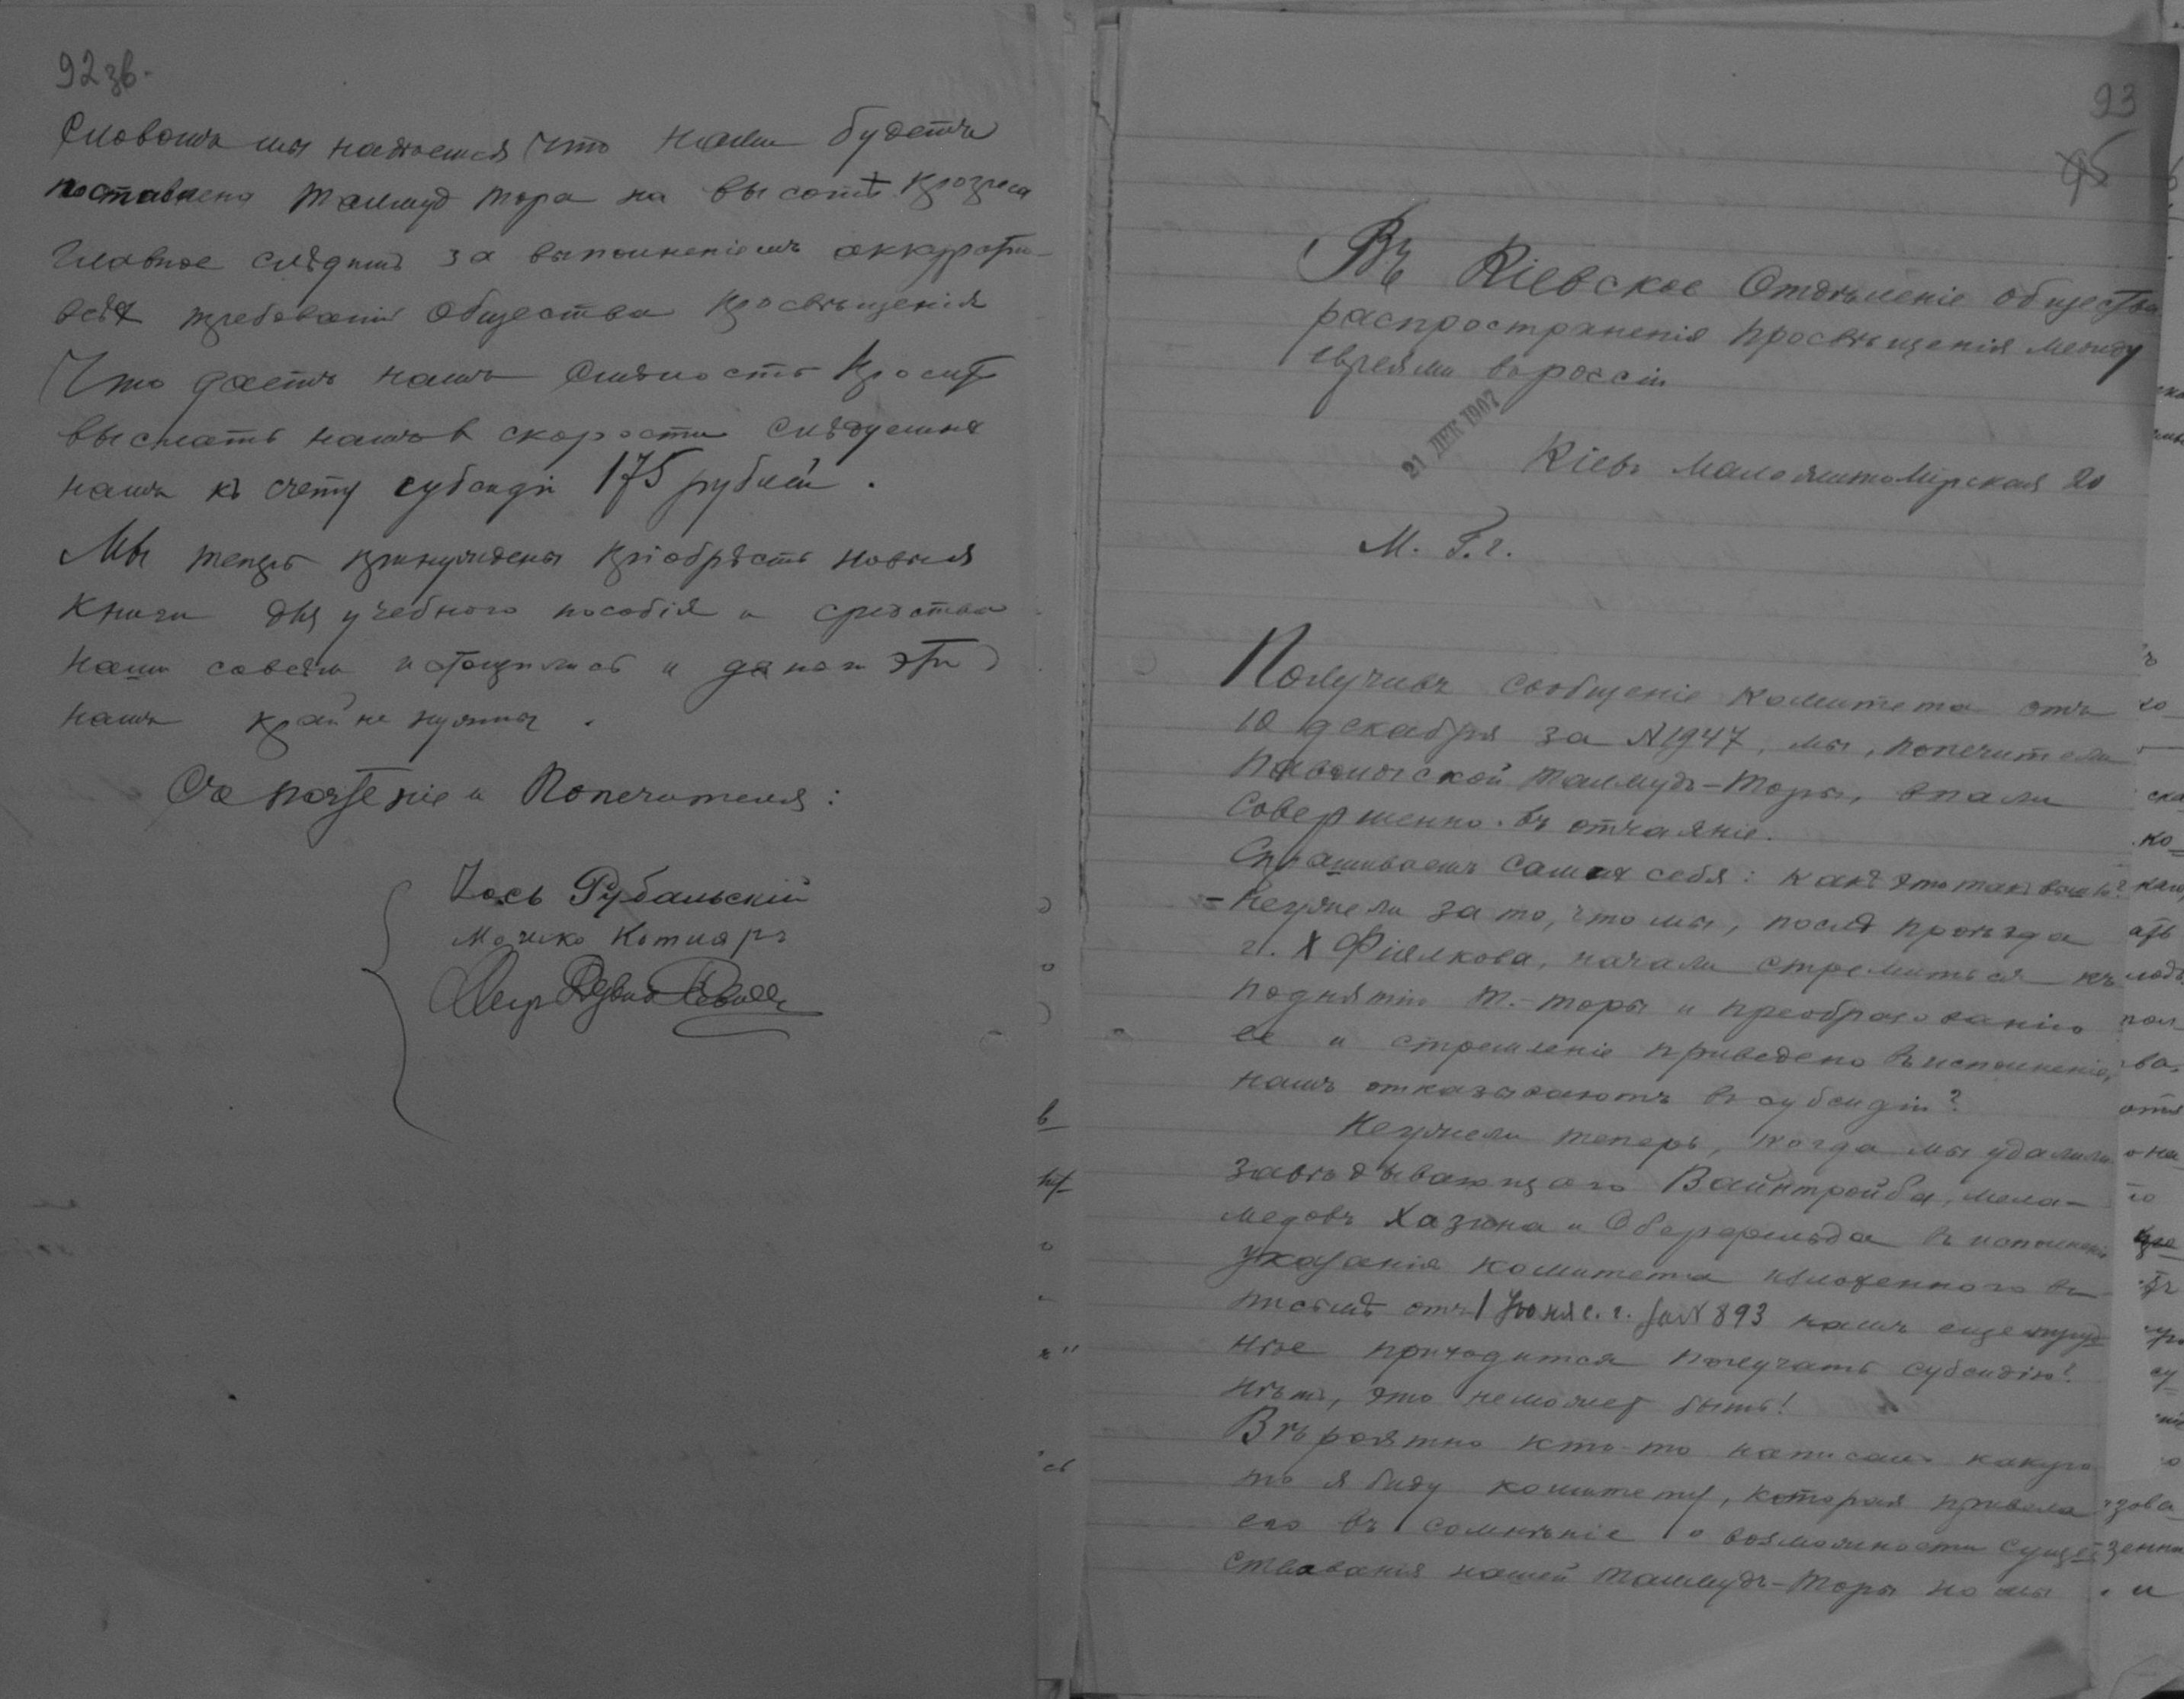 92 зв.
Словомъ мы надѣемся что нами будетъ
поставлена Талмуд Тора на высотѣ прогреса
Главное слѣдимъ за выполненіемъ аккуратн-
всѣх требованій Общества Просвѣщенія
Что даетъ намъ смѣлость просить
выслать намъ в скорости слѣдуемые
намъ къ счету субсидіи 175 рублей.
Мы теперь принуждены пріобрѣсть новыя
книги для учебного пособія и средства
наши совсѣмъ истощились и деньги эти
намъ крайне нужны.
Съ почтеніем Попечителя:
Іось Рубальскій
Мошко Котляръ
93
95
Въ Кіевское Отдѣленіе общества
распространенія просвѣщенія между
евреями въ россіи
21 ДЕК 1907
Кіевъ Маложитомірская 20
М. Г. г.
Получивъ сообщеніе Комитета отъ
10 декабря за №1947, мы, попечители
Паволочской Талмудъ-Торы, впали
совершенно въ отчаяніе.
Спрашиваемъ самихъ себя: какъ это такъ вышло?
- Неужели за то, что мы, послѣ проѣзда
г. Х Фіялкова, начали стремиться къ
поднятію Т.-торы и преобразованію
ее и стремленіе приведено въ исполненіе,
намъ отказываютъ въ субсидіи?
Неужели теперь, когда мы удалили
завѣдывающаго Вайнтройба, мела-
медовъ Хазина и Оберфельда въ исполненіе
указанія комитета изложенного въ
письмѣ отъ 1 Іюня с. г. за № 893 намъ еще труд-
нѣе приходится получать субсидію?
Нѣтъ, это не может быть!
Вѣроятно кто-то написалъ какую
то ябиду комитету, которая привела
его въ сомнѣніе о возможности суще-
ствованія нашей Талмудъ-Торы но мы